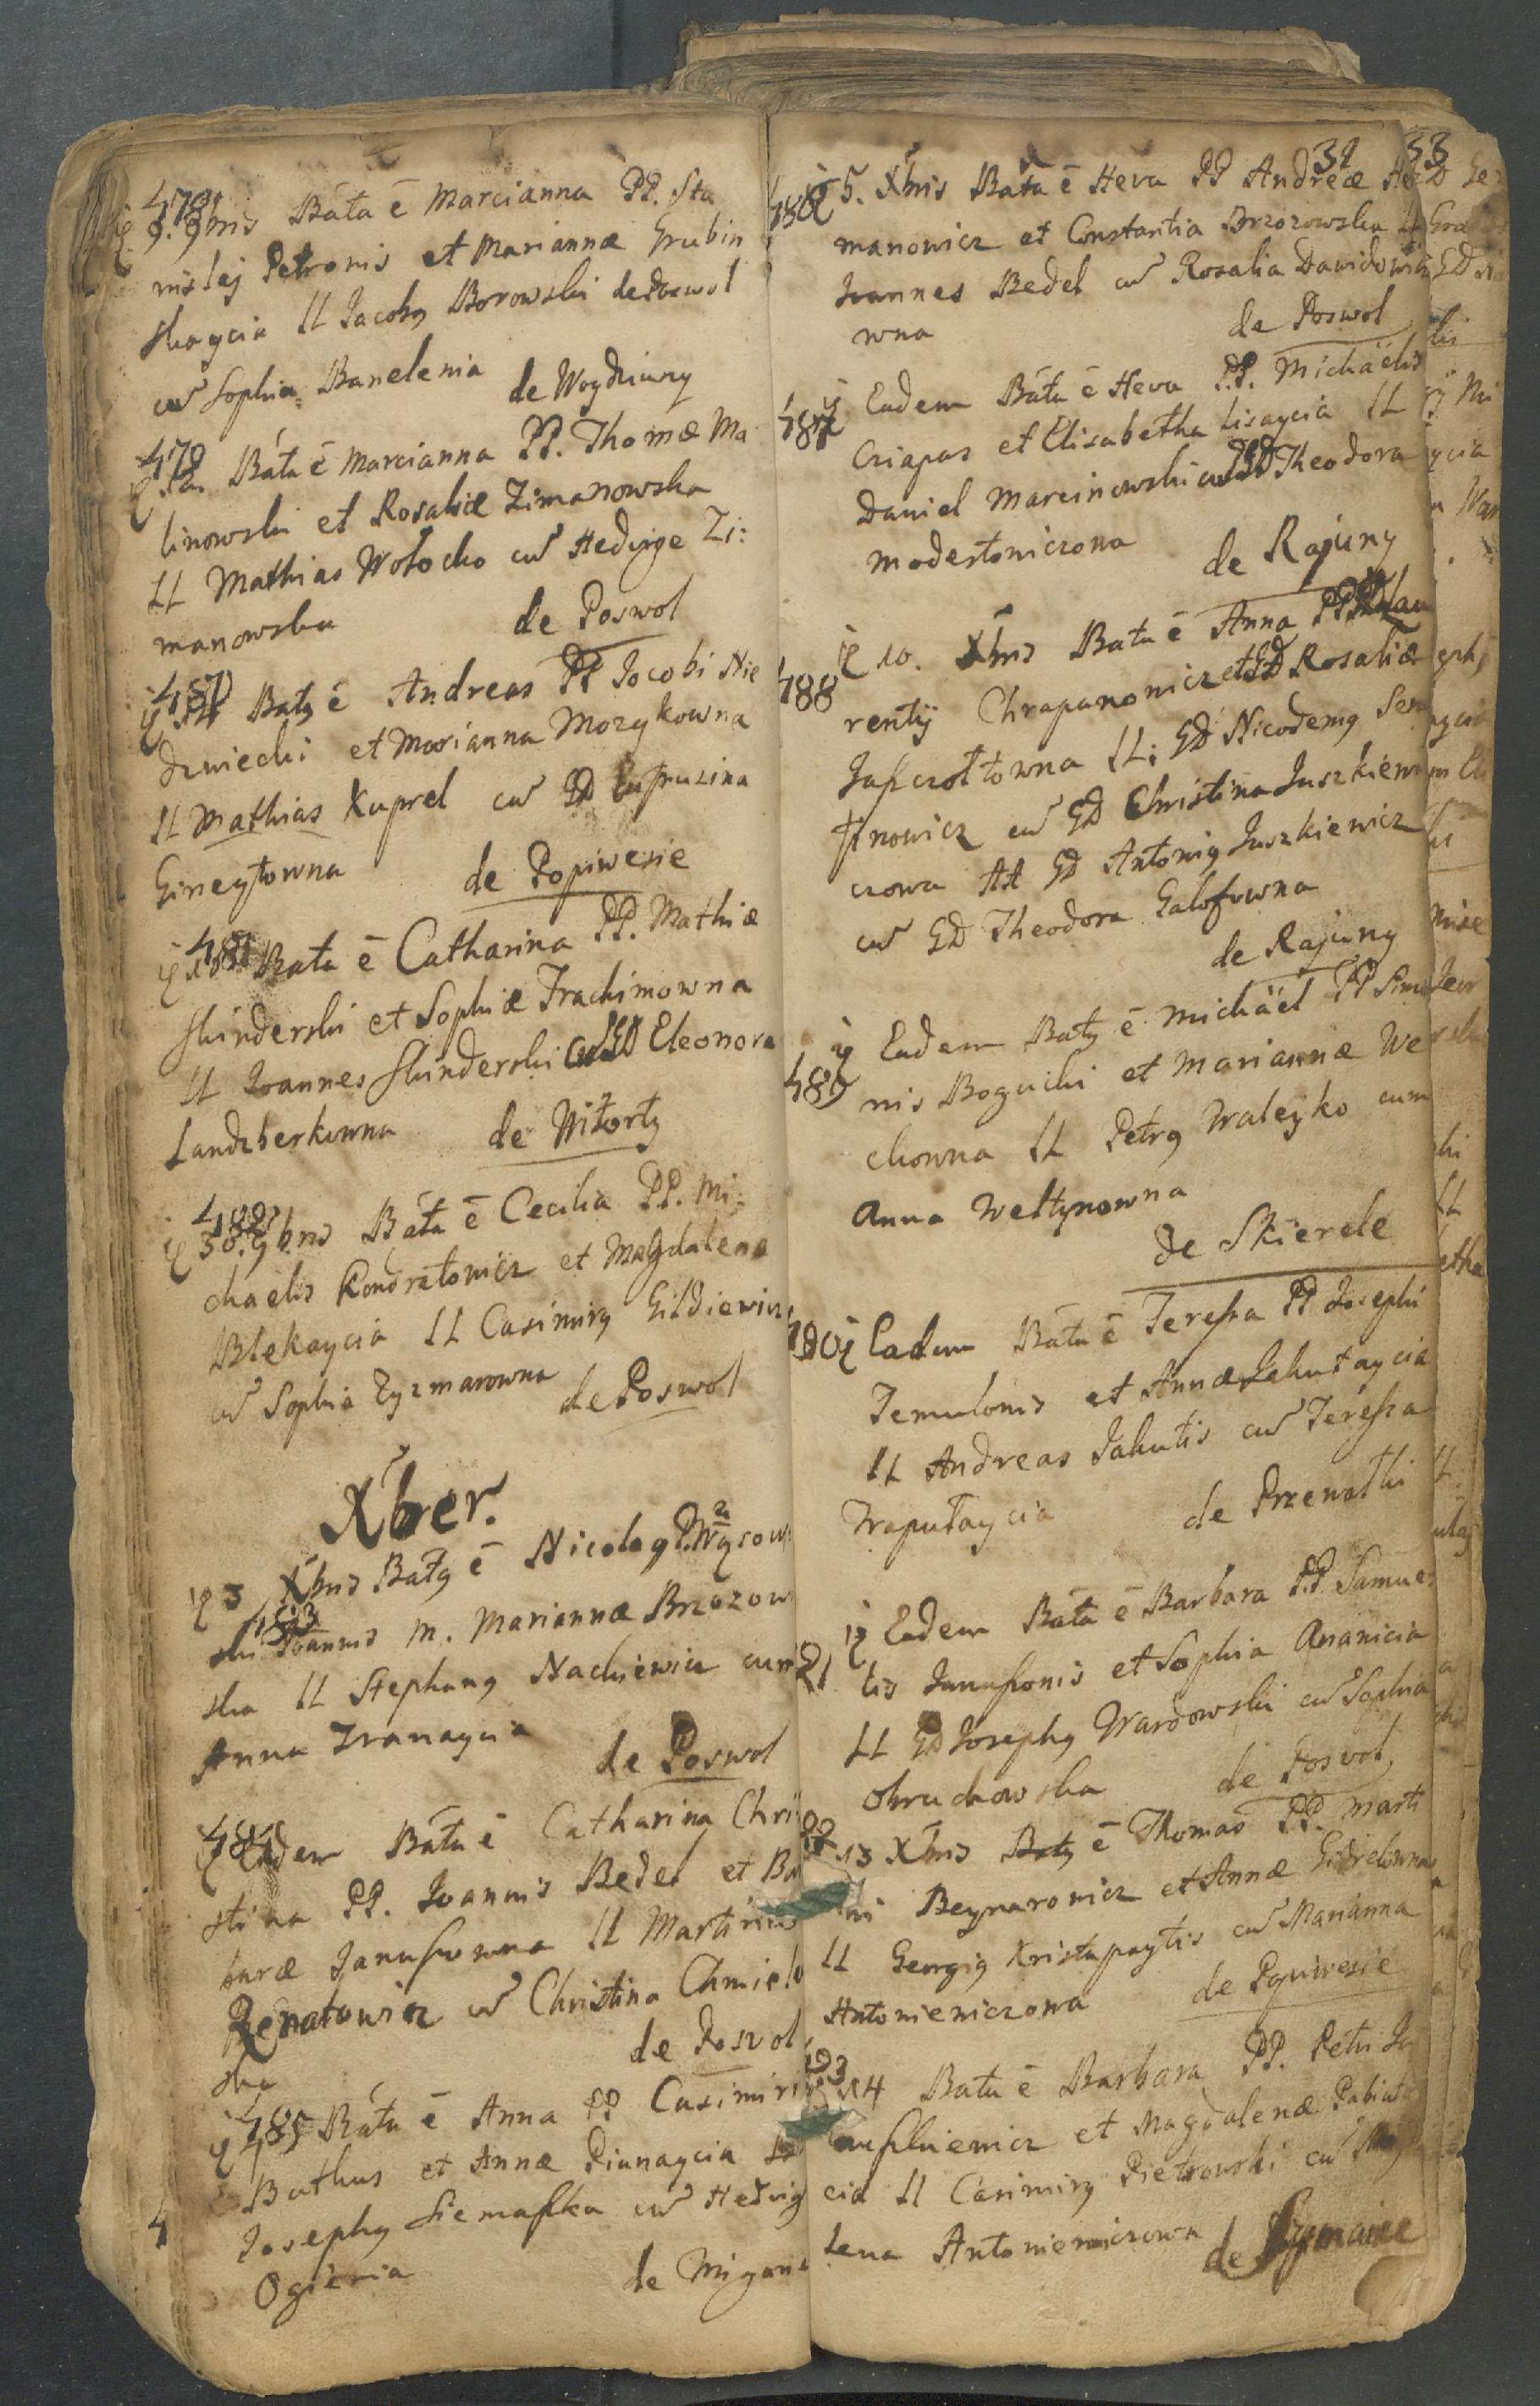 478
9. 9bris Bata ē Marcianna PP. Sta
nislai Petronis et Mariannæ Grubin
skaycia LL Jacobus Borowski de Poswol
cum Sophia Banelenia
de Woydziuny
479
Bata ē Marcianna PP. Thomæ Ma
linowski et Rosaliæ Zimanowska
LL Mathias Wołocko cum Hedvige Zi:
manowska
de Poswol
480
Batus ē Andreas PP Jocobi Nie
dzwiecki et Marianna Mozykowna
LL Mathias Kuprel cum GD Eufruzina
Gineytowna
de Popiwesie
481
Bata ē Catharina PP. Mathiæ
Skinderski et Sophiæ Trachimowna
LL Joannes Skinderski cum GD Eleonora
Landzberkowna
de Nitorty
482
30. 9bris Bata ē Cecilia PP. Mi:
chaelis Kondratowicz et Magdalenæ
Blekaycia LL Casimirus Gildiewicz
cum Sophia Zyzmarowna
de Poswol
Xber.
3 Xbris Batus ē Nicolaus P. Wąsow:
483
ski Joannis M. Mariannæ Brzozow
ska LL Stephanus Nackiewicz cum
Anna Iranaycia
de Poswol
484
Eadem Bata ē Catharina Chri
stina PP. Joannis Bedel et Bar
baræ Janusowna LL Martinus
Renatowicz cum Christina Chmielo
ska
de Poswol
485
Bata ē Anna PP Casimiri
Buthus et Annæ Diunaycia LL
Josephus Siemaszka cum Hedvig
Ogienia
de Migoni
32 33
486
5. Xbris Bata ē Heva PP Andreæ Her
manowicz et Constantia Brzozowska LL
Joannes Bedel cum Rosalia Dawidowicz
wna
de Poswol
487
Eadem Bata ē Heva PP. Michäelis
Cziapas et Elisabetha Lisaycia LL
Daniel Marcinowski cum GD Theodora
Modestowiczowa
de Rajuny
488
10. Xbris Bata ē Anna PP GD Lau
rentij Chrapanowicz et GD Rosaliæ
Jaszczołtowna LL: GD Nicodemus Ser
tinowicz cum GD Christina Juszkiewi
czowa AA GD Antonius Juszkiewicz
cum GD Theodora Galofowna
de Rajuny
489
Eadem Batus ē Michäel PP Simo
nis Bogucki et Mariannæ We
chowna LL Petrus Waleyko cum
Anna Weltynowna
de Skierele
490
Eadem Bata ē Teressa PP Josephi
Temulonis et Annæ Jakutaycia
LL Andreas Jakutis cum Teressa
Traputaycia
de Przewałki
91
Eadem Bata ē Barbara PP. Samue:
lis Janusonis et Sophia Ananicia
LL GD Josephus Wardowski cum Sophia
Okruchowska
de Poswol
92
13 Xbris Batus ē Thomas PP. Marti
ni Beynarowicz et Annæ Gidrelowna
LL Georgius Kristupaytis cum Marianna
Antoniewiczowa
de Popiwesie
93
14 Bata ē Barbara PP. Petri Ja
nuszkiewicz et Magdalenæ Pabiuta
cia LL Casimirus Pietrowski cum Magda
lena Antoniewiczowa
de Szymance